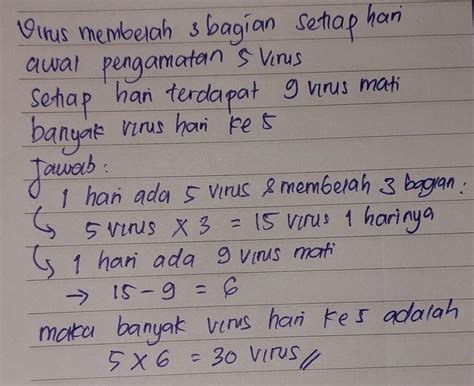 Virus membelah 3 bagian setiap hari
awal pengamatan 5 Virus
Setiap hari terdapat 9 virus mati
banyak virus hari ke 5
Jawab :
1 hari ada 5 virus & membelah 3 bagian :
↳ 5 virus × 3 = 15 virus 1 harinya
↳ 1 hari ada 9 virus mati
→ 15 - 9 = 6
maka banyak virus hari ke 5 adalah
5 × 6 = 30 virus //